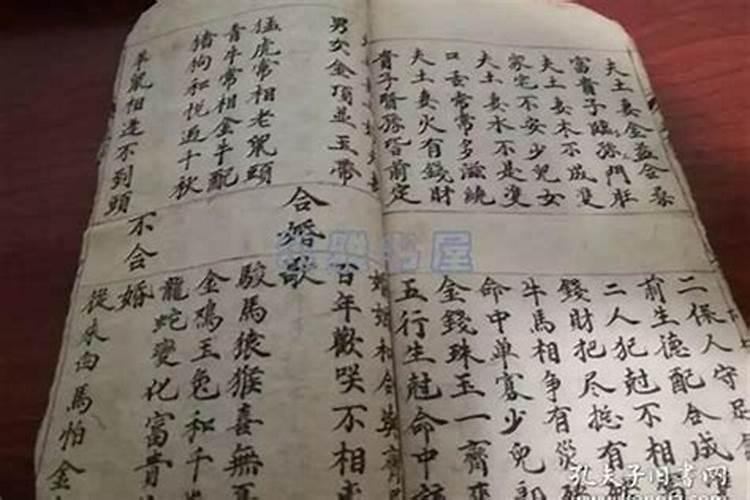 夫土妻金益合
富貴子臨孫門旺
夫土妻木不成雙
家宅不安少兒女
夫土妻水不是雙
口舌常常多滋繞
夫土妻火有錢財
貴子賢孫皆前定
二保人守足
前生德配合成
二人犯尅不相
錢財把尽捴有
牛馬相争有災
命中单寡少兒郎
金錢珠玉一齊來
五行生尅命中
婚姻和合
男女金頂並玉帶
百年歡咲不相
合婚歌
猛虎常相老鼠頭
駿馬猿猴喜無
青牛常相金牛配
金鸡玉兔和千
猪狗和悦过千秋
龍蛇變化富貴
不合婚
羊鼠相逢不到頭
從來白馬怕金
孔夫子旧書网